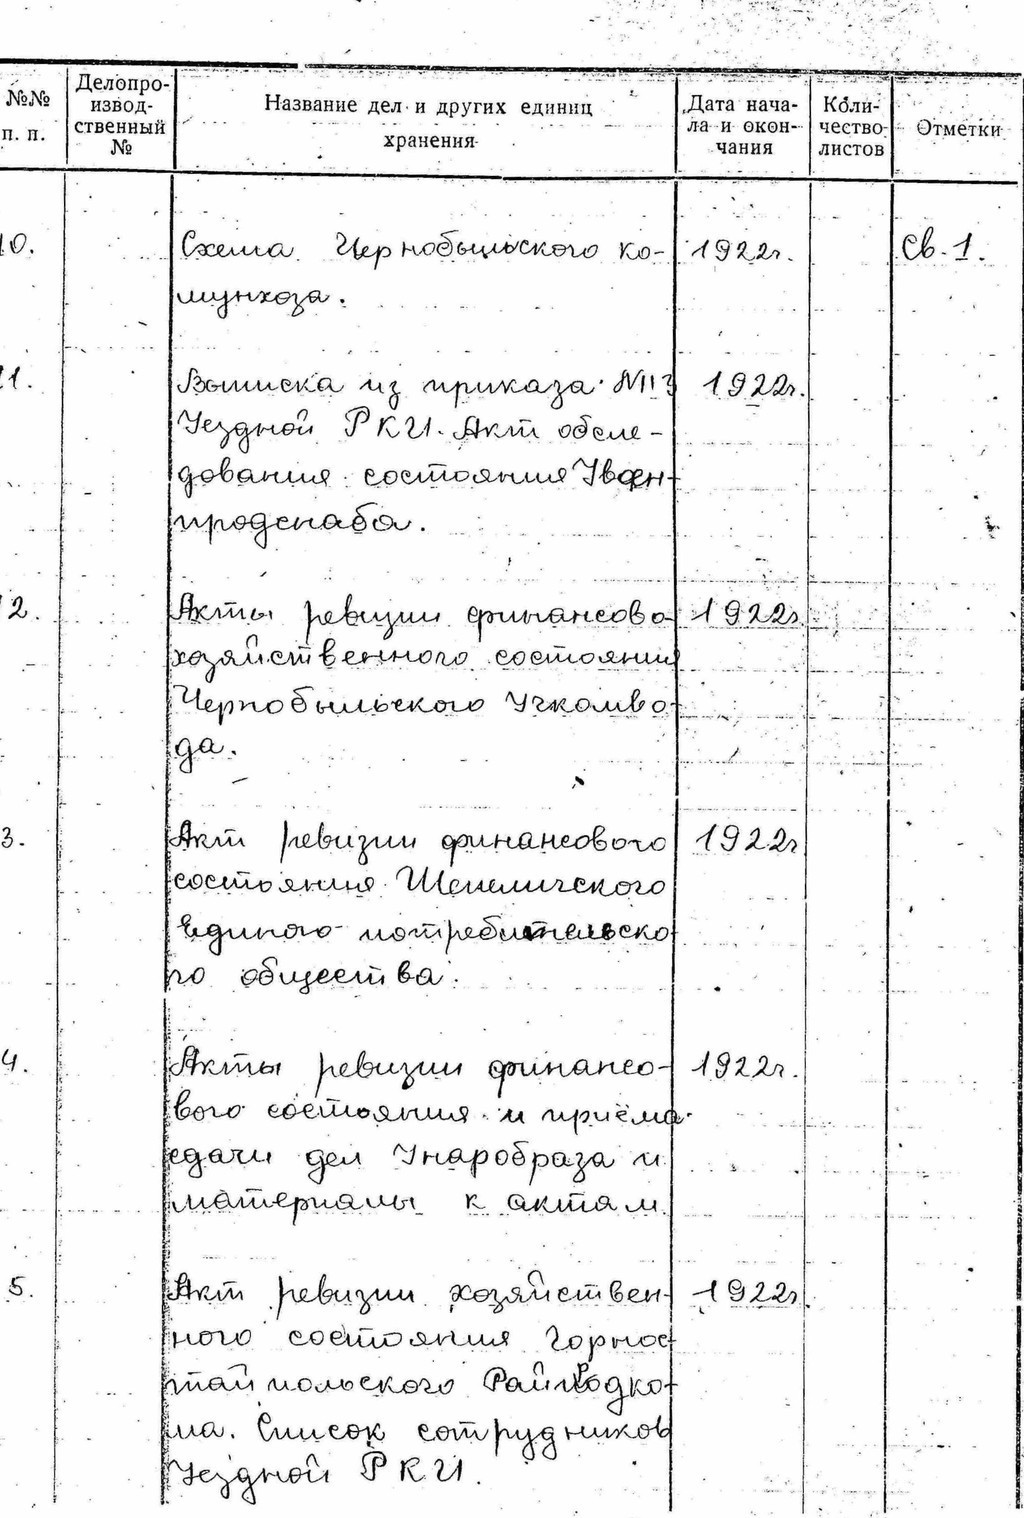 №№ п. п. Делопроизвод-ственный № Название дел и других единиц хранения Дата нача-ла и окон-чания Коли-чество листов Отметки
10. Схема Чернобыльского ко- 1922г. Св. 1.
мунхоза.
11. Выписка из приказа N113 1922г.
Уездной РКИ. Акт обсле-
дования состояния Увоен-
продснаба.
12. Акты ревизии финансово- 1922г
хозяйственного состояния
Чернобыльского Учкомво-
да.
3. Акт ревизии финансового 1922г
состояния Шепеличского
Единого потребительско-
го общества.
4. Акты ревизии финансо- 1922г.
вого состояния и приёма
сдачи дел Унаробраза и
материалы к актам.
5. Акт ревизии хозяйствен- 1922г
ного состояния Горнос-
тайпольского Райпродко-
ма. Список сотрудников
Уездной РКИ.